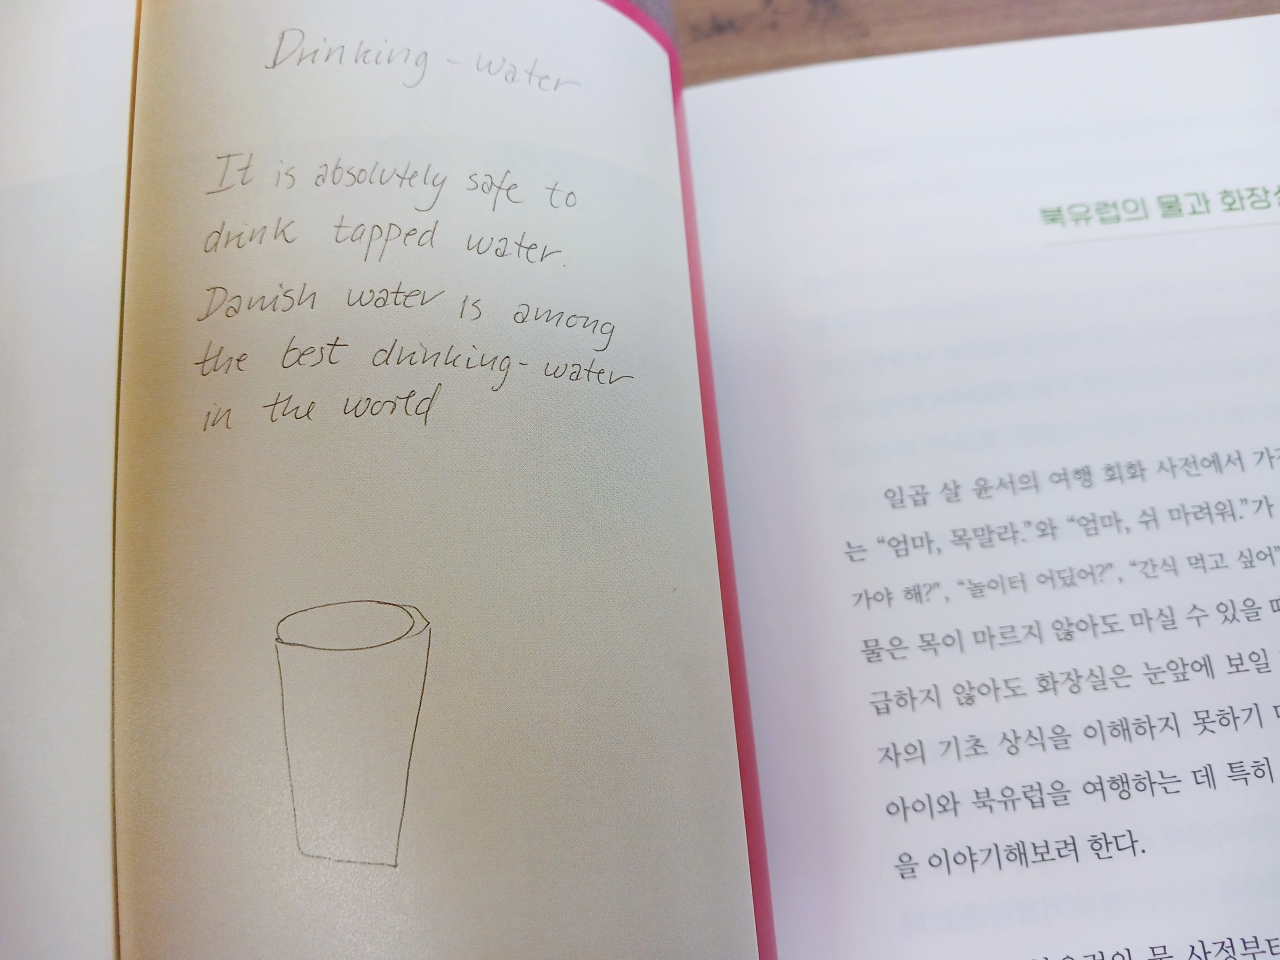 Drinking-water
It is absolutely safe to
drink tapped water.
Danish water is among
the best drinking-water
in the world
북유럽의 물과
일곱 살 윤서의 여행 회화 사전에서
는 “엄마, 목말라.”와 “엄마, 쉬 마려워.”가
가야 해?”, “놀이터 어딨어?”, “간식 먹고 싶어”
물은 목이 마르지 않아도 마실 수 있을
급하지 않아도 화장실은 눈앞에 보일
자의 기초 상식을 이해하지 못하기
아이와 북유럽을 여행하는 데 특히
을 이야기해보려 한다.